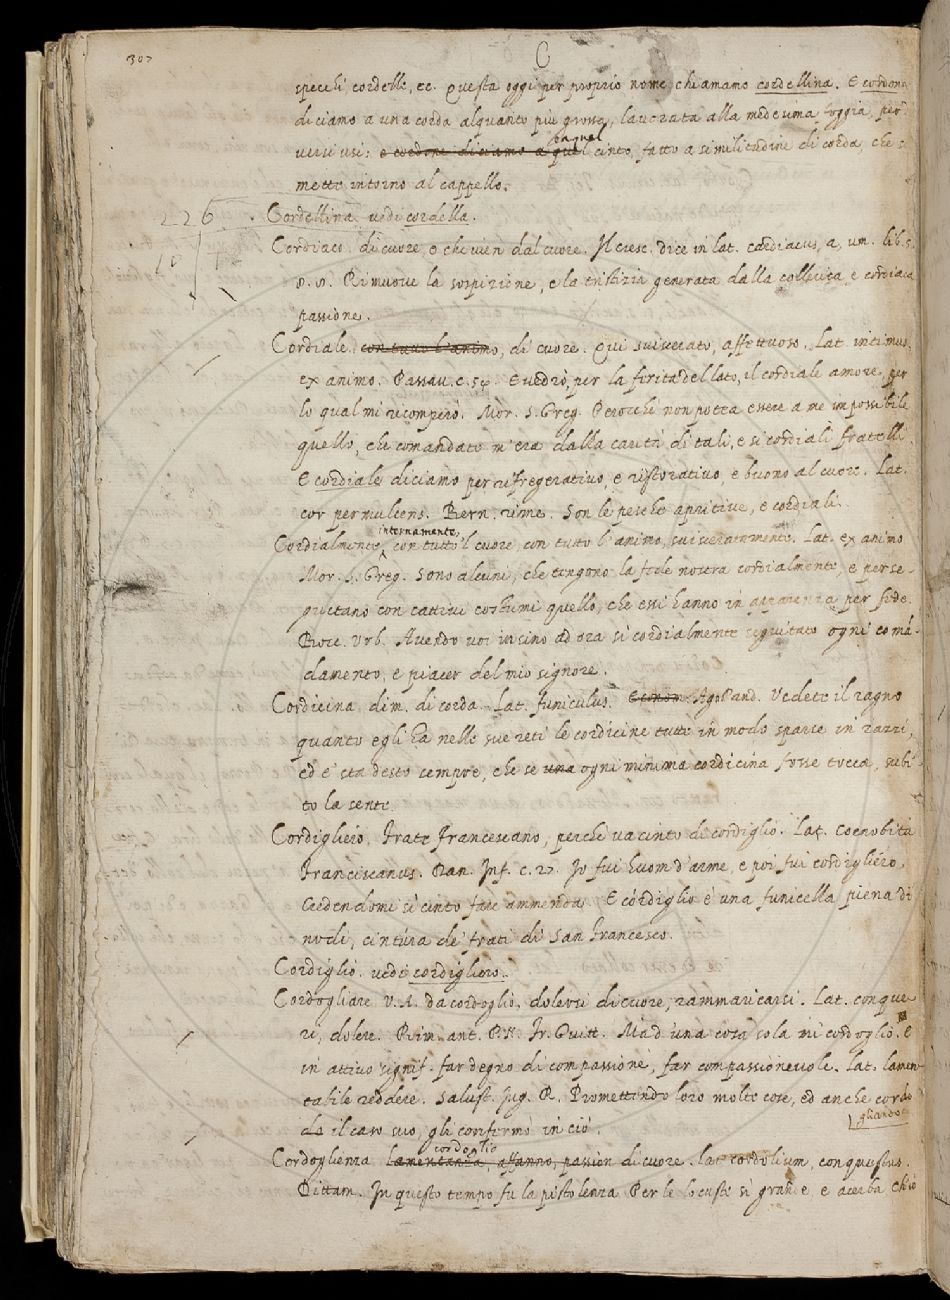 307
C
specchi, cordelle, ec. Questa oggi per proprio nome chiamamo cordellina. E cordone
diciamo a una corda alquanto più grossa, lavorata alla medesima foggia, per
versi usi: e cordone diciamo a quel cinto, fatto a similitudine di corda, che si
mette intorno al cappello.
226
Cordellina. vedi cordella.
Cordiaco. di cuore, o che vien dal cuore. Il cresc. dice in lat. cardiacus, a, um. lib. 5.
Rimuove la sospizione, e la tristizia generata dalla collerica, e cordiaca
passione.
Cordiale. con tutto l'animo, di cuore. Qui sviscerato, affettuoso. Lat. intimus,
ex animo. Passav. c. E vedrò, per la ferita del lato, il cordiale amore, per
lo qual mi ricomperò. Mor. S. Greg. Perocchè non potea essere a me impossibile
quello, che comandato m'era dalla carità di tali, e sì cordiali fratelli.
E cordiale diciamo per refregerativo, e ristorativo, e buono al cuore. Lat.
cor permulcens. Bern. rime. Son le pesche apritive, e cordiali.
internamente,
Cordialmente, con tutto 'l cuore, con tutto l'animo, svisceratamente. Lat. ex animo
Mor. S. Greg. Sono alcuni, che tengono la fede nostra cordialmente, e perse-
guitano con cattivi costumi quello, che essi hanno in apparenza per fede.
Bocc. Urb. Avendo voi insino ad ora sì cordialmente seguitato ogni comã-
damento, e piacer del mio signore.
Cordicina dim. di corda. Lat. funiculus. Econom. Ago Pand. Vedete il ragno
quanto egli ha nelle sue reti le cordicine tutte in modo sparse in razzi,
ed e' sta desto sempre, che se una ogni minima cordicina fosse tocca, subi-
to la sente.
Cordigliero, Frate Francescano, perchè va cinto di cordiglio. Lat. Coenobita
Franciscanus. Dan. Inf. c. 27. Io fui huom d'arme, e poi fui cordigliero,
Credendomi sì cinto fare ammenda. E cordiglio è una funicella piena di
nodi, cintura de' frati di San Francesco.
Cordiglio. vedi cordigliero.
Cordogliare V.A. da cordoglio, dolersi di cuore, rammaricarsi. Lat. conque-
ri, dolere. Rim. ant. P.N. Fr. Guitt. Ma d'una cosa sola mi cordoglio. E
in attivo signif. far degno di compassione, far compassionevole. Lat. lamen-
tabile reddere. Salust. Jug. R. Promettendo loro molte cose, ed anche cordo
gliando
do il caso suo, gli confermò in ciò.
cordoglio
Cordoglienza lamentanza, affanno, passion di cuore. lat. cordolium, conquestus.
Dittam. In questo tempo fu la pistolenza Per le locuste sì grande e acerba Ch'io